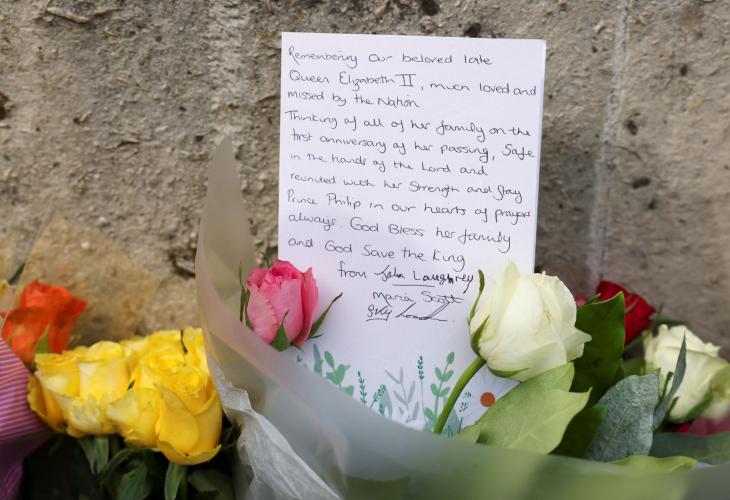 Remembering Our beloved late
Queen Elizabeth II, much loved and
missed by the Nation
Thinking of all of her family on the
first anniversary of her passing, Safe
in the hands of the Lord and
reunited with her Strength and Stay
Prince Philip in our hearts of prayers
always. God Bless her family
and God Save the King
from John Loughrey
Maria Scott
Sky London